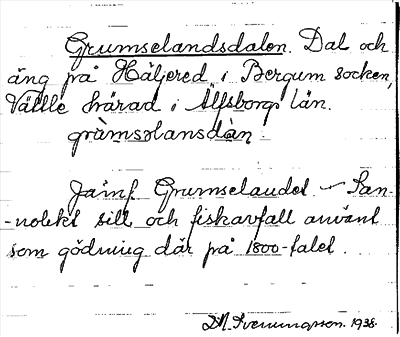 Grumselandsdalen. Dal och
äng på Häljered i Bergum socken,
Vättle härad i Älfsborgs län.
gràmsəlansdàn
Jämf. Grumselandet. – San-
-nolikt sill och fiskavfall använt
som gödning där på 1800-talet.
D.N. Svenningsson. 1938.